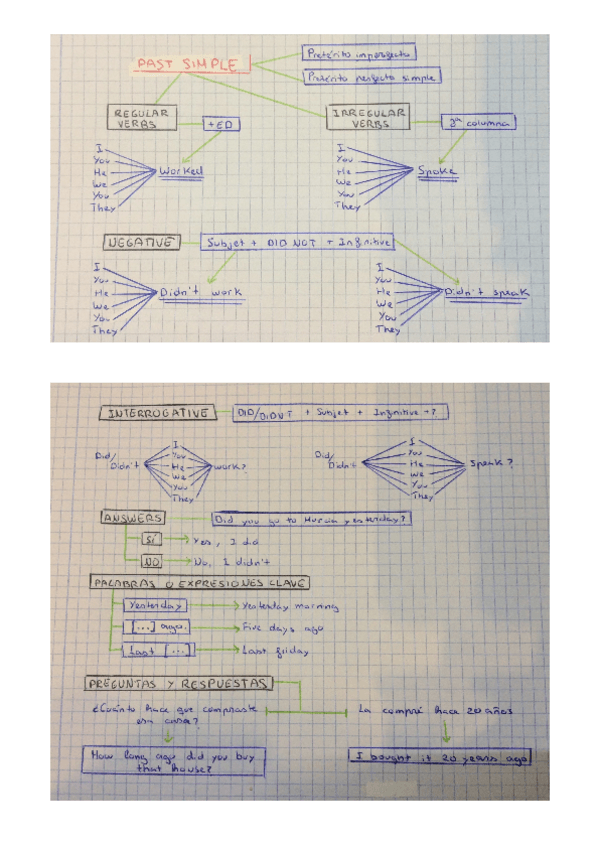 PAST SIMPLE
Pretérito imperfecto
Pretérito perfecto simple
REGULAR VERBS
+ED
IRREGULAR VERBS
2ª columna
I
You
He
We
You
They
Worked
I
You
He
We
You
They
Spoke
NEGATIVE
Subjet + DID NOT + Infinitive
I
You
He
We
You
They
Didn't work
I
You
He
We
You
They
Didn't speak
INTERROGATIVE
DID/DIDN'T + Subjet + Infinitive + ?
Did/
Didn't
I
You
He
We
You
They
work?
Did/
Didn't
I
You
He
We
You
They
Speak?
ANSWERS
Did you go to Murcia yesterday?
SÍ
Yes, I did
NO
No, I didn't
PALABRAS O EXPRESIONES CLAVE
Yesterday
Yesterday morning
[...] ago.
Five days ago
Last [...]
Last friday
PREGUNTAS Y RESPUESTAS
¿Cuánto hace que compraste
esa casa?
La compré hace 20 años
How long ago did you buy
that house?
I bought it 20 years ago